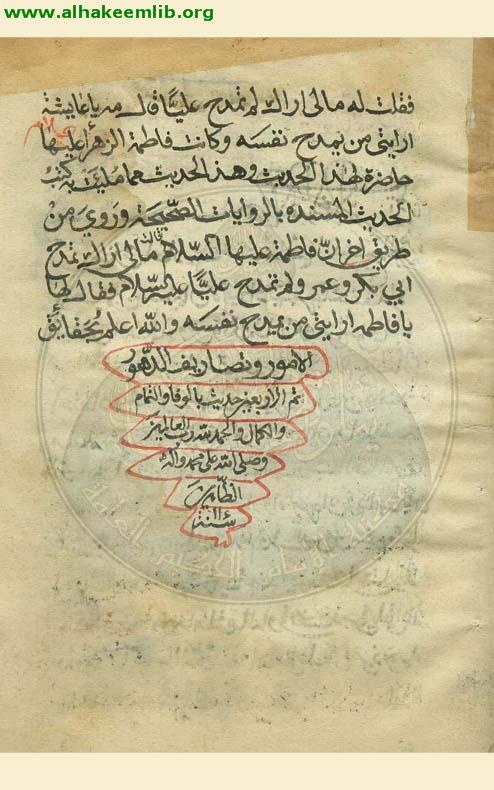 www.alhakeemlib.org
فقلت له مالى اراك لم تمدح عليًّا قال مه يا عايشة
ارايتى من يمدح نفسه وكانت فاطمة الزهرا عليها
حاضرة لهذا الحديث وهذ الحديث مما مليت به كتب
الحديث المسنده بالروايات الصّحيحة وروي من
طريق اخر انّ فاطمة عليها السّلام قالت مالى اراك تمدح
ابي بكر وعمر ولم تمدح عليًّا عليه السّلام فقال لها
يا فاطمه ارايتى من يمدح نفسه والله اعلم بحقايق
الامور وتصاريف الدّهور
تم الاربعين حديث بالوفا والتمام
والكمال والحمد لله رب العالمين
وصلى الله على محمد واله
الطّاهرين
سنة